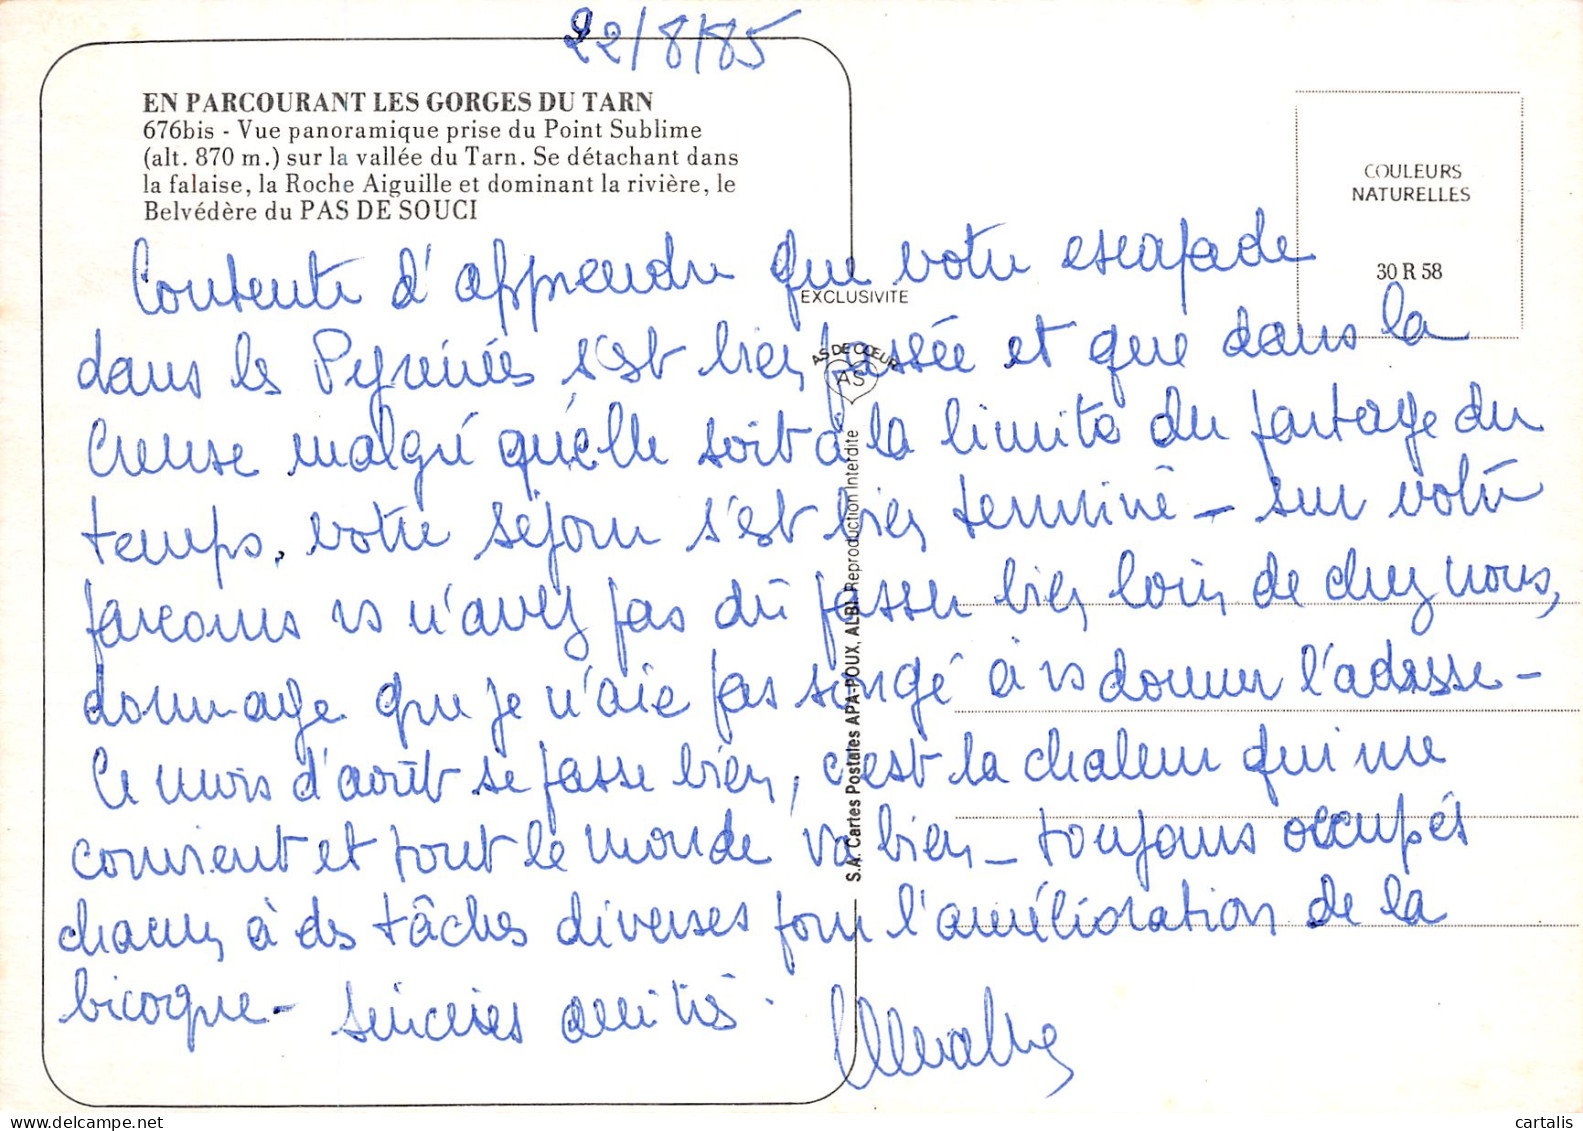 22/8/85
EN PARCOURANT LES GORGES DU TARN
676bis - Vue panoramique prise du Point Sublime
(alt. 870 m.) sur la vallée du Tarn. Se détachant dans
la falaise, la Roche Aiguille et dominant la rivière, le
Belvédère du PAS DE SOUCI
COULEURS
NATURELLES
30 R 58
EXCLUSIVITE
AS DE CŒUR
AS
S.A. Cartes Postales APA-POUX, ALBI. Reproduction Interdite
Contente d'apprendre que votre escapade
dans les Pyrénées s'est bien passée et que dans la
Creuse malgré qu'elle soit à la limite du partage du
temps, votre séjour s'est bien terminé - sur votre
parcours vs n'avez pas dû passer bien loin de chez nous,
dommage que je n'aie pas songé à vs donner l'adresse -
Ce mois d'août se passe bien, c'est la chaleur qui me
convient et tout le monde va bien - toujours occupés
chacun à des tâches diverses pour l'amélioration de la
bicoque - sincères amitiés.
cartalis
www.delcampe.net